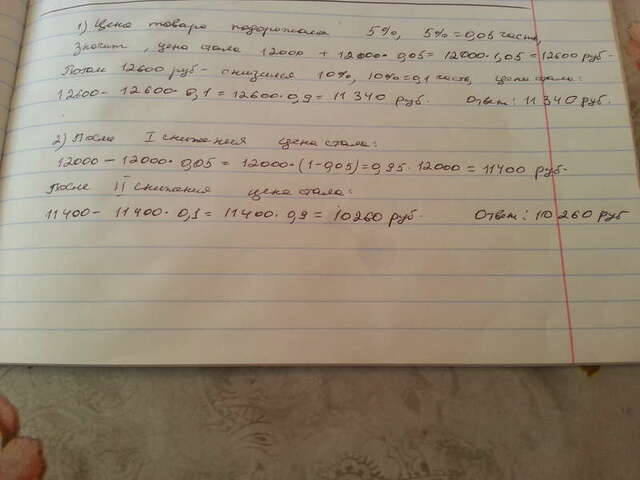 1) Цена товара подорожала 5%, 5% = 0,05 часть,
Значит, цена стала 12000 + 12000 · 0,05 = 12000 · 1,05 = 12600 руб-
Потом 12600 руб - снизился 10%, 10% = 0,1 часть, цена стала:
12600 - 12600 · 0,1 = 12600 · 0,9 = 11 340 руб. Ответ: 11 340 руб.
2) После I снижения цена стала:
12000 - 12000 · 0,05 = 12000 · (1-0,05) = 0,95 · 12000 = 11400 руб-
После II снижения цена стала:
11400 - 11400 · 0,1 = 11400 · 0,9 = 10260 руб. Ответ: 10 260 руб